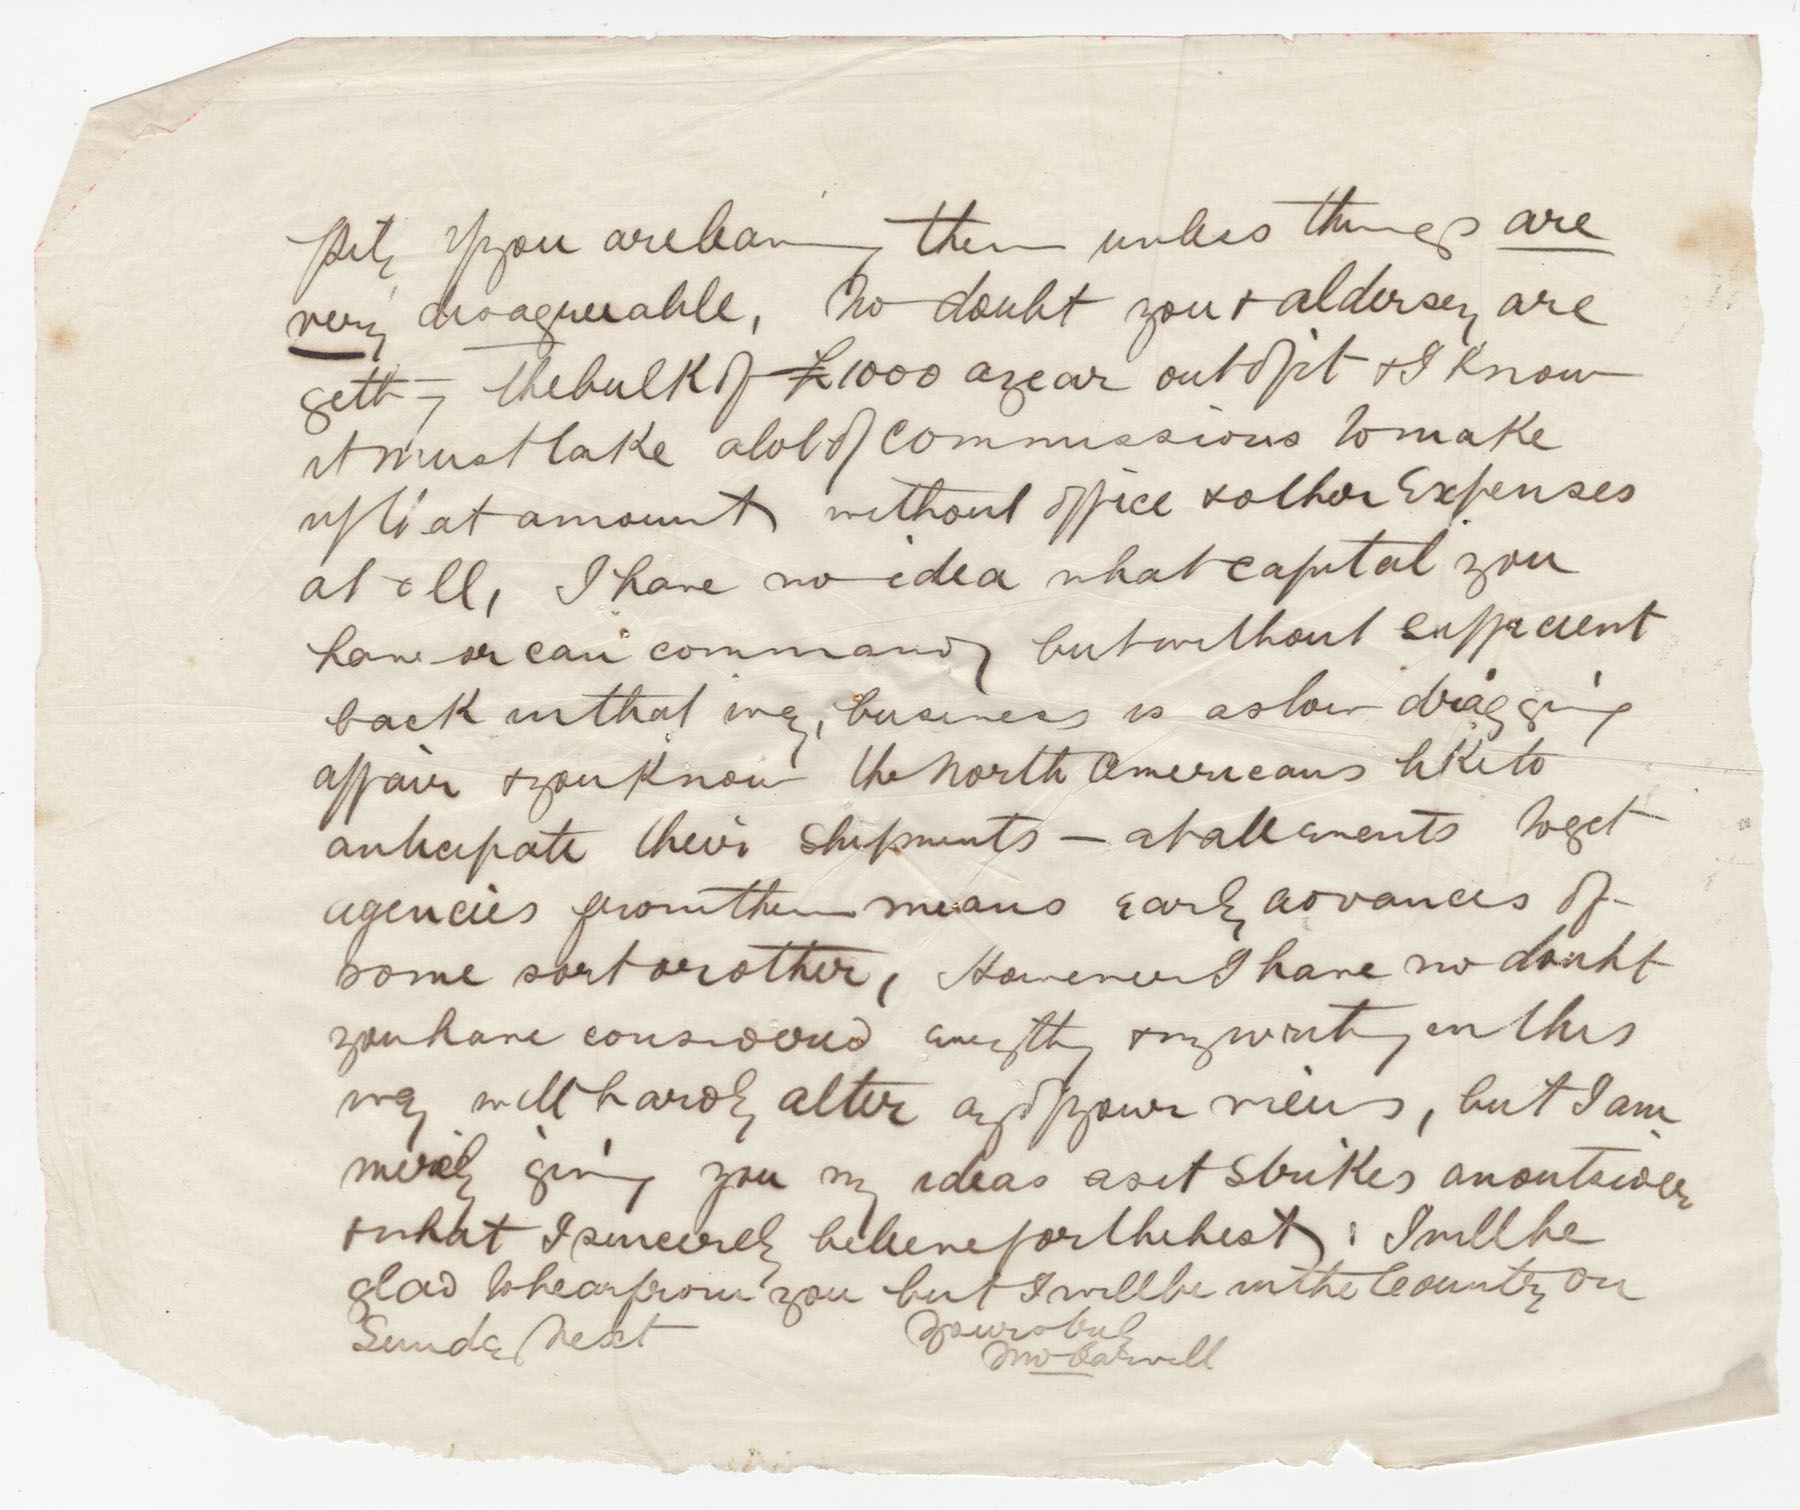 pity if you are leaving them unless things are
very disagreeable, No doubt you & Aldersey are
getting the bulk of £1000 a year out of it & I know
it must take a lot of commissions to make
up that amount without office & other expenses
at all, I have no idea what capital you
have or can command, but without sufficient
back in that way, business is a slow dragging
affair & you know the North Americans like to
anticipate their shipments — at all events to get
agencies from them means early advances of
some sort or other, However I have no doubt
you have considered everything & my writing in this
way will hardly alter any of your views, but I am
merely giving you my ideas as it strikes an outsider
& what I sincerely believe for the best, I will be
glad to hear from you but I will be in the Country on
Sunday Next Yours truly